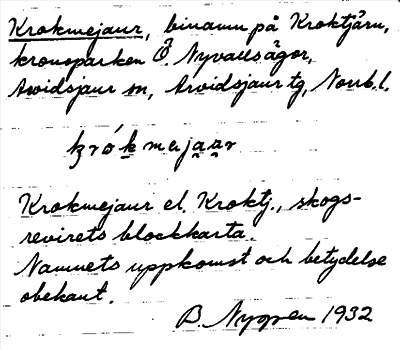 Krokmejaur, binamn på Kroktjärn,
kronoparken Ö. Nyvallsägor,
Arvidsjaur sn, Arvidsjaur tg, Norrb. l.
krók mejaar
Krokmejaur el. Kroktj., skogs-
revirets blockkarta.
Namnets uppkomst och betydelse
obekant.
B. Nygren 1932